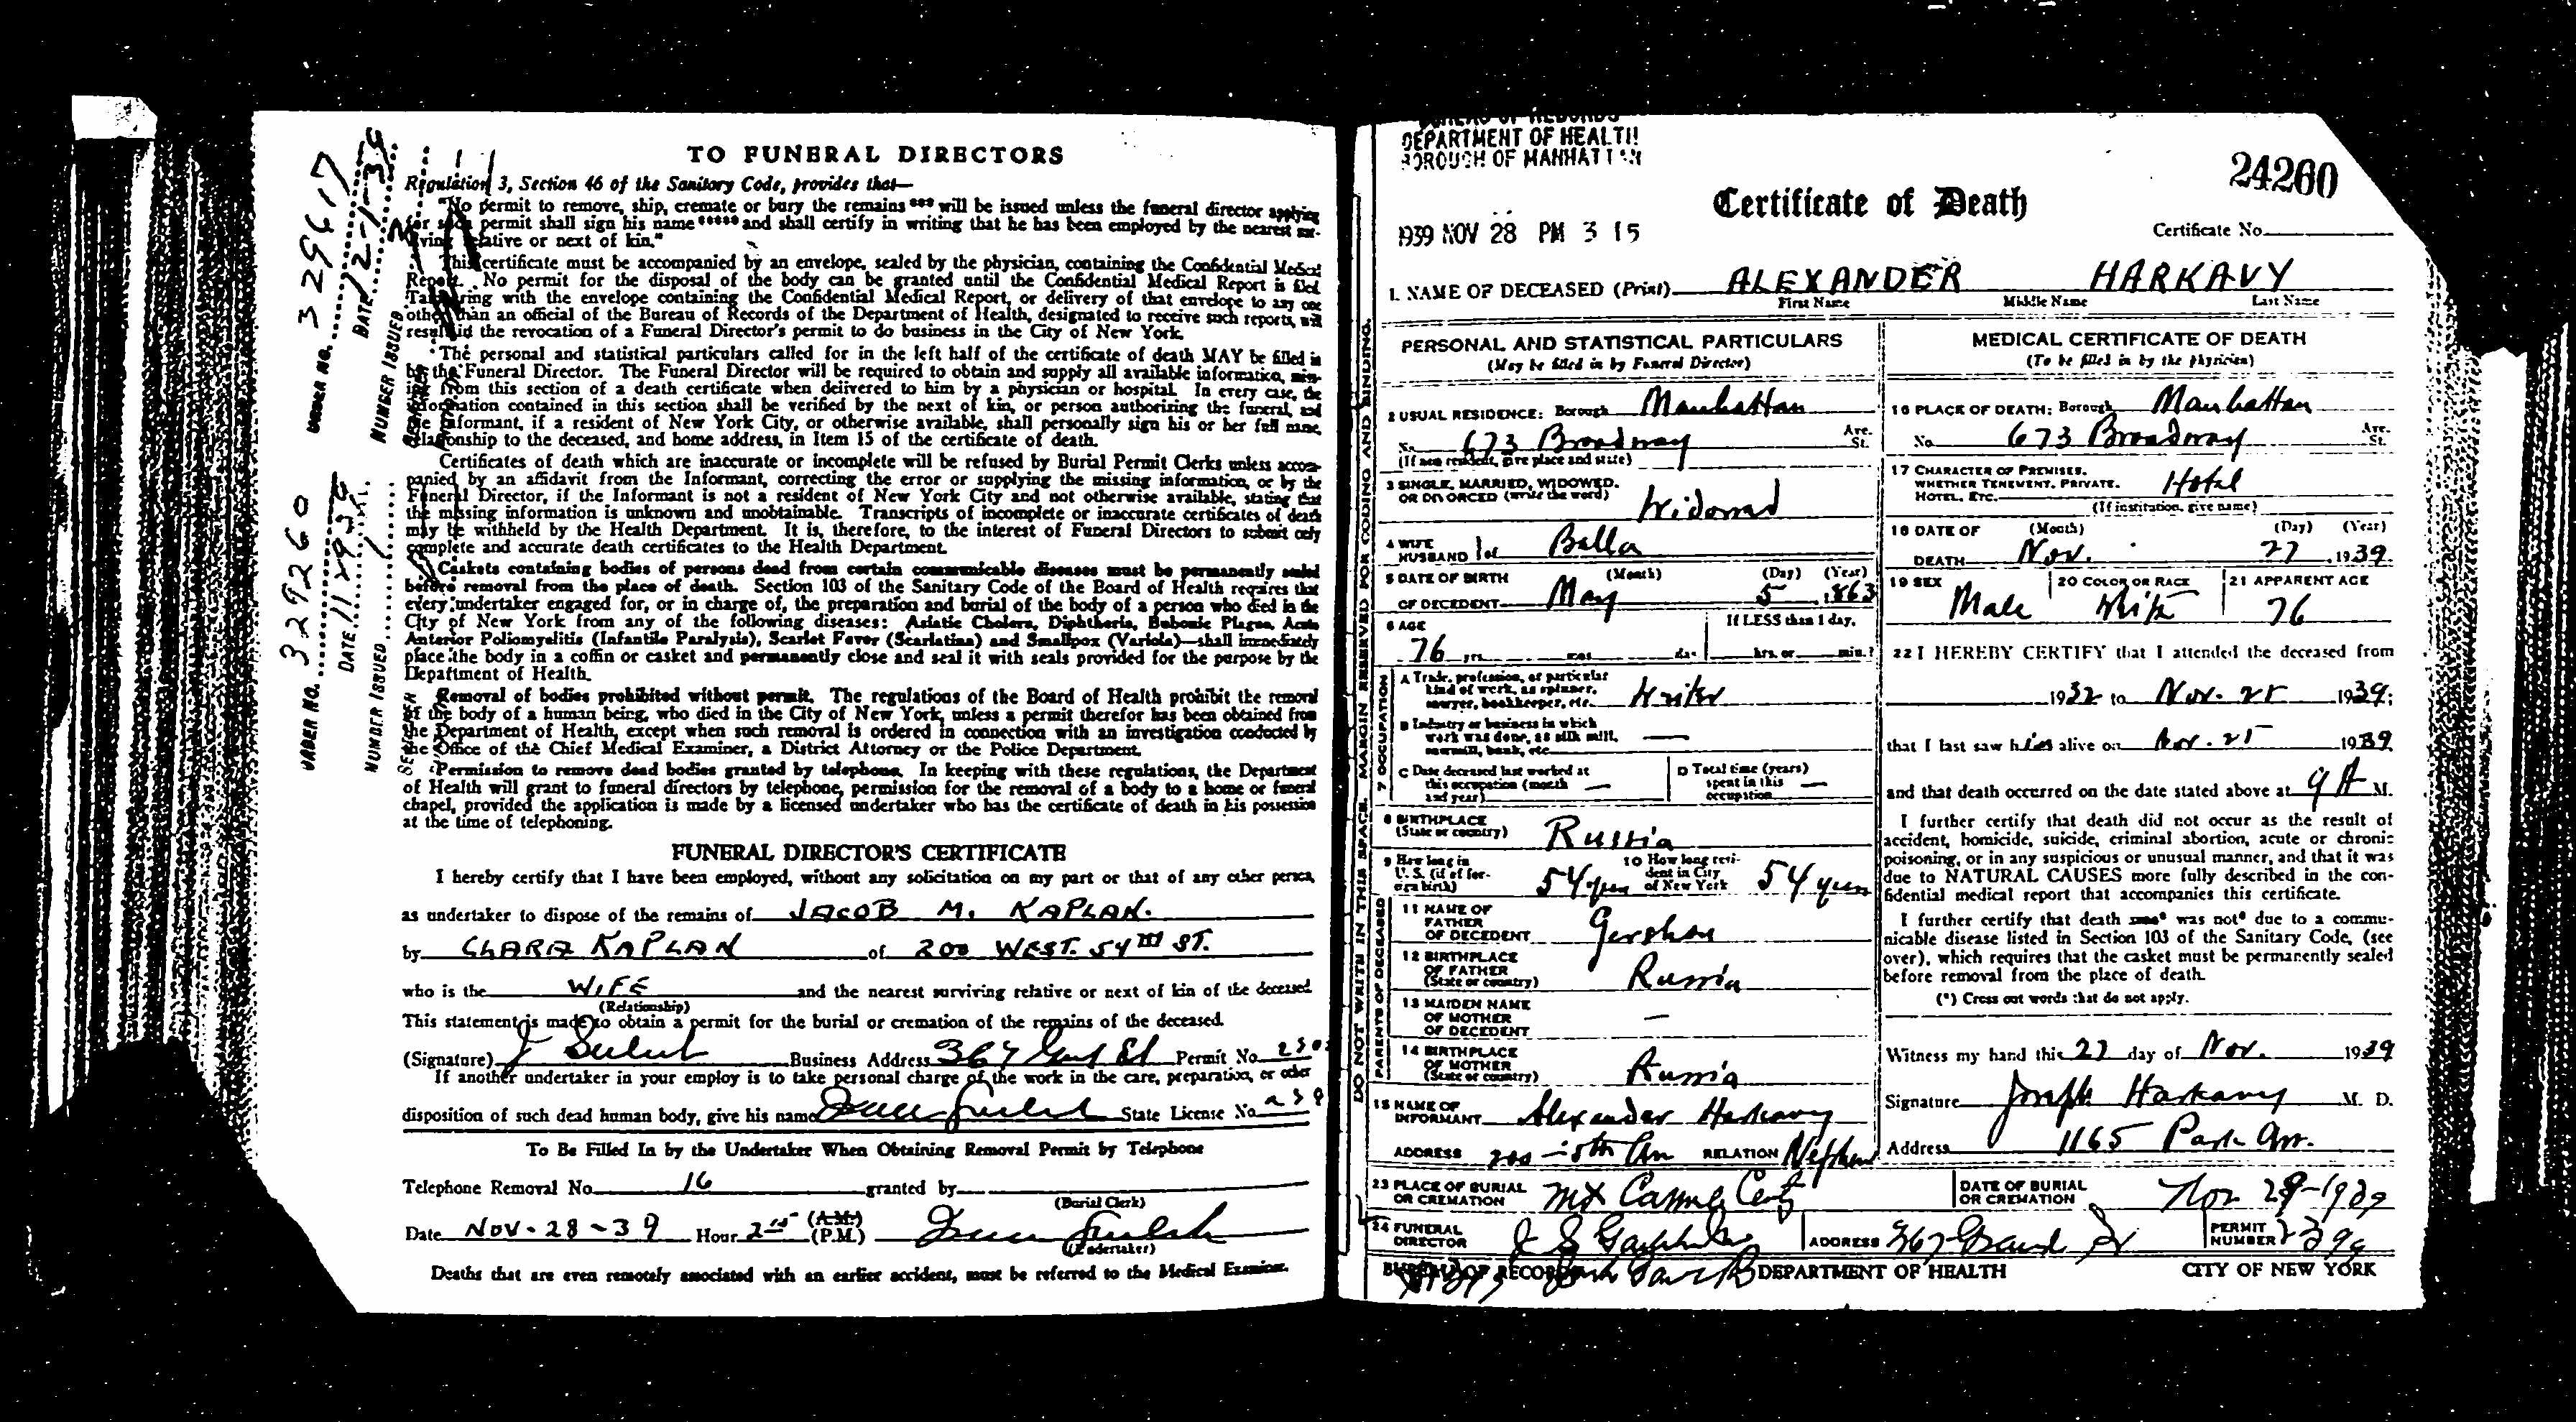 TO FUNERAL DIRECTORS
Regulation 3, Section 46 of the Sanitary Code, provides that—
"No permit to remove, ship, cremate or bury the remains *** will be issued unless the funeral director applying
for such permit shall sign his name ***** and shall certify in writing that he has been employed by the nearest sur-
viving relative or next of kin."
This certificate must be accompanied by an envelope, sealed by the physician, containing the Confidential Medical
Report. No permit for the disposal of the body can be granted until the Confidential Medical Report is filed.
Tampering with the envelope containing the Confidential Medical Report, or delivery of that envelope to any one
other than an official of the Bureau of Records of the Department of Health, designated to receive such reports, will
result in the revocation of a Funeral Director's permit to do business in the City of New York.
The personal and statistical particulars called for in the left half of the certificate of death MAY be filled in
by the Funeral Director. The Funeral Director will be required to obtain and supply all available information, mis-
sing from this section of a death certificate when delivered to him by a physician or hospital. In every case, the
information contained in this section shall be verified by the next of kin, or person authorizing the funeral, and
the informant, if a resident of New York City, or otherwise available, shall personally sign his or her full name,
relationship to the deceased, and home address, in Item 15 of the certificate of death.
Certificates of death which are inaccurate or incomplete will be refused by Burial Permit Clerks unless accom-
panied by an affidavit from the Informant, correcting the error or supplying the missing information, or by the
Funeral Director, if the Informant is not a resident of New York City and not otherwise available, stating that
the missing information is unknown and unobtainable. Transcripts of incomplete or inaccurate certificates of death
may be withheld by the Health Department. It is, therefore, to the interest of Funeral Directors to submit only
complete and accurate death certificates to the Health Department.
Caskets containing bodies of persons dead from certain communicable diseases must be permanently sealed
before removal from the place of death. Section 103 of the Sanitary Code of the Board of Health requires that
every undertaker engaged for, or in charge of, the preparation and burial of the body of a person who died in the
City of New York from any of the following diseases: Asiatic Cholera, Diphtheria, Bubonic Plague, Acute
Anterior Poliomyelitis (Infantile Paralysis), Scarlet Fever (Scarlatina) and Smallpox (Variola)—shall immediately
place the body in a coffin or casket and permanently close and seal it with seals provided for the purpose by the
Department of Health.
Removal of bodies prohibited without permit. The regulations of the Board of Health prohibit the removal
of the body of a human being, who died in the City of New York, unless a permit therefor has been obtained from
the Department of Health, except when such removal is ordered in connection with an investigation conducted by
the Office of the Chief Medical Examiner, a District Attorney or the Police Department.
Permission to remove dead bodies granted by telephone. In keeping with these regulations, the Department
of Health will grant to funeral directors by telephone, permission for the removal of a body to a home or funeral
chapel, provided the application is made by a licensed undertaker who has the certificate of death in his possession
at the time of telephoning.
FUNERAL DIRECTOR'S CERTIFICATE
I hereby certify that I have been employed, without any solicitation on my part or that of any other person,
as undertaker to dispose of the remains of JACOB M. KAPLAN.
by CLARA KAPLAN of 200 WEST. 54TH ST.
who is the WIFE and the nearest surviving relative or next of kin of the deceased.
(Relationship)
This statement is made to obtain a permit for the burial or cremation of the remains of the deceased.
(Signature) Business Address 367 Permit No.
If another undertaker in your employ is to take personal charge of the work in the care, preparation, or other
disposition of such dead human body, give his name State License No.
To Be Filled In by the Undertaker When Obtaining Removal Permit by Telephone
Telephone Removal No. 16 granted by
(Burial Clerk)
Date NOV-28-39 Hour 2 15 (A.M.) (P.M.)
(Undertaker)
Deaths that are even remotely associated with an earlier accident, must be referred to the Medical Examiner.
ORDER NO. 329617
DATE 12-1-39
NUMBER ISSUED
ORDER NO. 329260
DATE 11 29 39
NUMBER ISSUED 1
BUREAU OF RECORDS
DEPARTMENT OF HEALTH
BOROUGH OF MANHATTAN
1939 NOV 28 PM 3 15
24260
Certificate of Death
Certificate No.
1. NAME OF DECEASED (Print) ALEXANDER HARKAVY
First Name Middle Name Last Name
DO NOT WRITE IN THIS SPACE. MARGIN RESERVED FOR CODING AND BINDING.
PERSONAL AND STATISTICAL PARTICULARS
(May be filled in by Funeral Director)
2 USUAL RESIDENCE: Borough Manhattan
No. 673 Broadway Ave. St.
(If non resident, give place and state)
3 SINGLE, MARRIED, WIDOWED, OR DIVORCED (write the word) Widowed
4 WIFE HUSBAND of Bella
5 DATE OF BIRTH (Month) (Day) (Year)
OF DECEDENT May 5 1863
6 AGE If LESS than 1 day,
76 yrs. mos. da. hrs. or min.?
7 OCCUPATION
A Trade, profession, or particular kind of work, as spinner, sawyer, bookkeeper, etc. Writer
B Industry or business in which work was done, as silk mill, sawmill, bank, etc. —
C Date deceased last worked at this occupation (month and year) —
D Total time (years) spent in this occupation —
8 BIRTHPLACE (State or country) Russia
9 How long in U. S. (if of foreign birth) 54 years
10 How long resident in City of New York 54 years
PARENTS OF DECEASED
11 NAME OF FATHER OF DECEDENT Gershon
12 BIRTHPLACE OF FATHER (State or country) Russia
13 MAIDEN NAME OF MOTHER OF DECEDENT —
14 BIRTHPLACE OF MOTHER (State or country) Russia
15 NAME OF INFORMANT Alexander Harkavy
ADDRESS 200 - 5th Av RELATION Nephew
MEDICAL CERTIFICATE OF DEATH
(To be filled in by the physician)
16 PLACE OF DEATH: Borough Manhattan
No. 673 Broadway Ave. St.
17 CHARACTER OF PREMISES, WHETHER TENEMENT, PRIVATE, HOTEL, ETC. Hotel
(If institution, give name)
18 DATE OF (Month) (Day) (Year)
DEATH Nov. 27, 1939
19 SEX Male 20 COLOR OR RACE White 21 APPARENT AGE 76
22 I HEREBY CERTIFY that I attended the deceased from
1932 to Nov. 25 1939;
that I last saw him alive on Nov. 25 1939
and that death occurred on the date stated above at 9 A M.
I further certify that death did not occur as the result of
accident, homicide, suicide, criminal abortion, acute or chronic
poisoning, or in any suspicious or unusual manner, and that it was
due to NATURAL CAUSES more fully described in the con-
fidential medical report that accompanies this certificate.
I further certify that death was* was not* due to a commu-
nicable disease listed in Section 103 of the Sanitary Code, (see
over), which requires that the casket must be permanently sealed
before removal from the place of death.
(*) Cross out words that do not apply.
Witness my hand this 27 day of Nov. 1939
Signature Joseph Harkavy M. D.
Address 1165 Park Av.
23 PLACE OF BURIAL OR CREMATION Mt Carmel Cem DATE OF BURIAL OR CREMATION Nov 29-1939
24 FUNERAL DIRECTOR ADDRESS 367 Grand St PERMIT NUMBER
BUREAU OF RECORDS DEPARTMENT OF HEALTH CITY OF NEW YORK